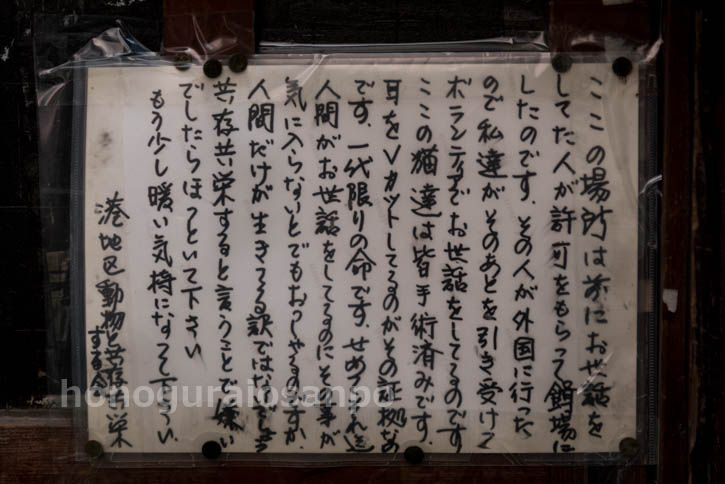 ここの場所は前にお世話を
してた人が許可をもらって餌場に
したのです、その人が外国に行った
ので私達がそのあとを引き受けて
ボランティアでお世話をしてるのです
ここの猫達は皆手術済みです、
耳をVカットしてるのがその証拠なの
です、一代限りの命です、せめてそれ迄
人間がお世話をしてるのにその事が
気に入らないとでもおっしゃるのですか、
人間だけが生きてる訳ではないでしょう
共存共栄すると言うことで嫌い
でしたらほっといて下さい
もう少し暖い気持になって下さい
港地区動物と共存共栄
する会
honoguraiosanpo